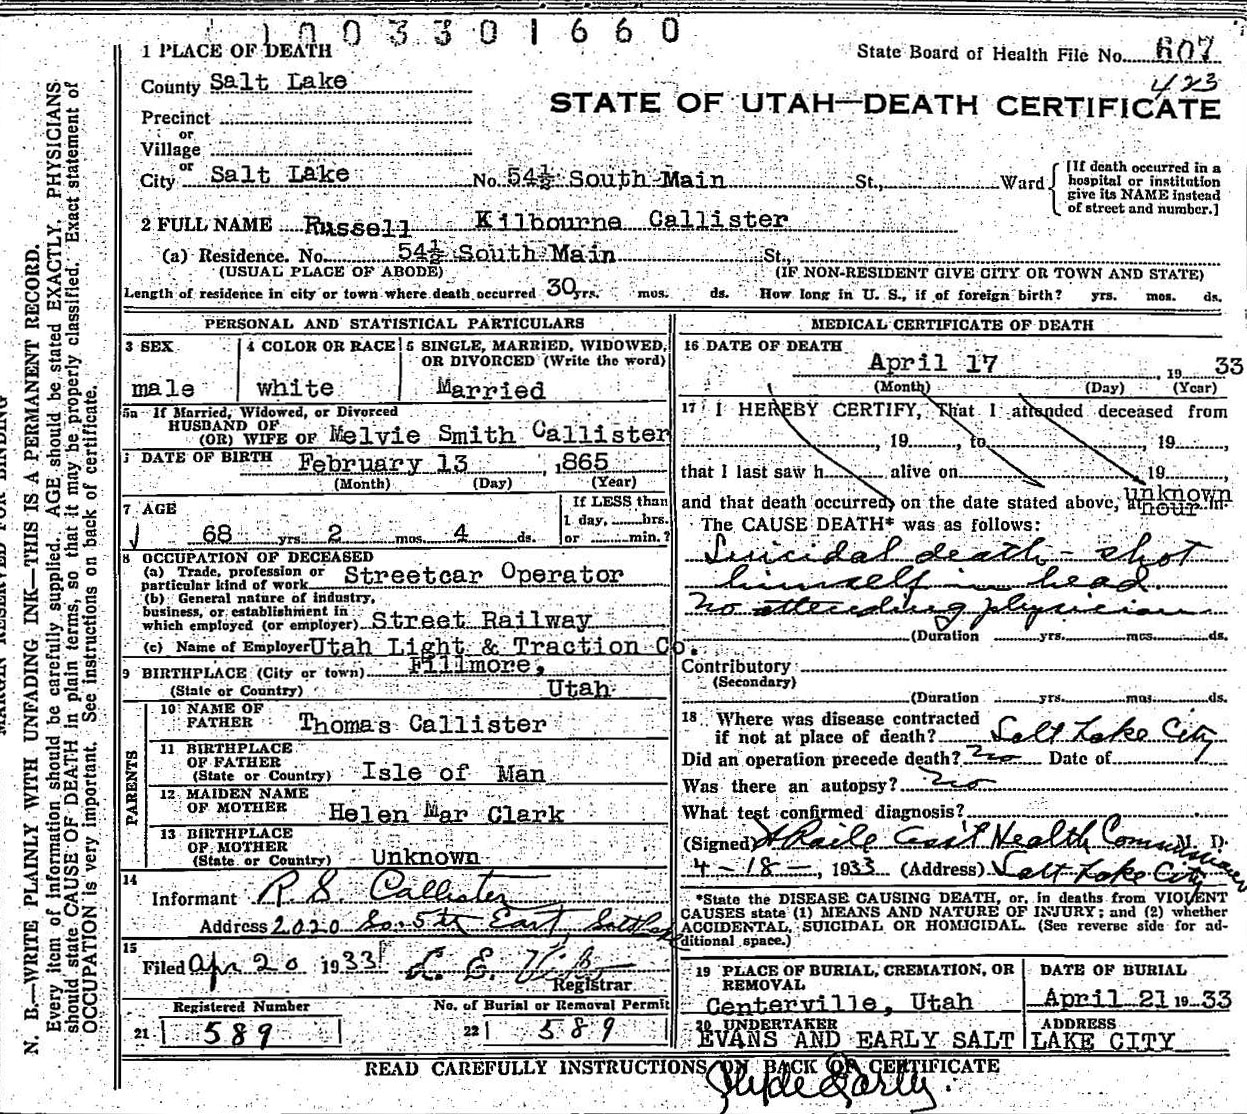 1003301660
State Board of Health File No. 607
423
STATE OF UTAH—DEATH CERTIFICATE
1 PLACE OF DEATH
County Salt Lake
Precinct
or
Village
or
City Salt Lake No. 54½ South Main St., Ward
[If death occurred in a
hospital or institution
give its NAME instead
of street and number.]
2 FULL NAME Russell Kilbourne Callister
(a) Residence. No. 54½ South Main St.,
(USUAL PLACE OF ABODE) (IF NON-RESIDENT GIVE CITY OR TOWN AND STATE)
Length of residence in city or town where death occurred 30 yrs. mos. ds. How long in U. S., if of foreign birth? yrs. mos. ds.
PERSONAL AND STATISTICAL PARTICULARS
3 SEX
male
4 COLOR OR RACE
white
5 SINGLE, MARRIED, WIDOWED,
OR DIVORCED (Write the word)
Married
5a If Married, Widowed, or Divorced
HUSBAND OF
(OR) WIFE OF Melvie Smith Callister
DATE OF BIRTH February 13 , 1865
(Month) (Day) (Year)
7 AGE
68 yrs. 2 mos. 4 ds.
If LESS than
1 day, hrs.
or min.?
8 OCCUPATION OF DECEASED
(a) Trade, profession or
particular kind of work Streetcar Operator
(b) General nature of industry,
business, or establishment in
which employed (or employer) Street Railway
(c) Name of Employer Utah Light & Traction Co.
9 BIRTHPLACE (City or town) Fillmore,
(State or Country) Utah
PARENTS
10 NAME OF
FATHER Thomas Callister
11 BIRTHPLACE
OF FATHER
(State or Country) Isle of Man
12 MAIDEN NAME
OF MOTHER Helen Mar Clark
13 BIRTHPLACE
OF MOTHER
(State or Country) Unknown
14
Informant R. S. Callister
Address 2020 So. 5th East, Salt Lake
15
Filed Apr 20 1933 L. E.
Registrar
Registered Number No. of Burial or Removal Permit
21 589 22 589
MEDICAL CERTIFICATE OF DEATH
16 DATE OF DEATH
April 17 19 33
(Month) (Day) (Year)
17 I HEREBY CERTIFY, That I attended deceased from
, 19 , to , 19 ,
that I last saw h alive on 19 ,
and that death occurred, on the date stated above, at unknown
hour m.
The CAUSE DEATH* was as follows:
Suicidal death - shot
himself in head.
No attending physician
(Duration yrs. mos. ds.
Contributory
(Secondary)
(Duration yrs. mos. ds.
18 Where was disease contracted
if not at place of death? Salt Lake City
Did an operation precede death? No Date of
Was there an autopsy? No
What test confirmed diagnosis?
(Signed) Ass't Health Commissioner M. D.
4-18-, 1933 (Address) Salt Lake City
*State the DISEASE CAUSING DEATH, or, in deaths from VIOLENT
CAUSES state (1) MEANS AND NATURE OF INJURY; and (2) whether
ACCIDENTAL, SUICIDAL OR HOMICIDAL. (See reverse side for ad-
ditional space.)
19 PLACE OF BURIAL, CREMATION, OR
REMOVAL
Centerville, Utah
DATE OF BURIAL
April 21 19 33
20 UNDERTAKER ADDRESS
EVANS AND EARLY SALT LAKE CITY
READ CAREFULLY INSTRUCTIONS ON BACK OF CERTIFICATE
Clyde Early.
MARGIN RESERVED FOR BINDING
N. B.—WRITE PLAINLY WITH UNFADING INK—THIS IS A PERMANENT RECORD.
Every item of information should be carefully supplied. AGE should be stated EXACTLY. PHYSICIANS
should state CAUSE OF DEATH in plain terms, so that it may be properly classified. Exact statement of
OCCUPATION is very important. See instructions on back of certificate.